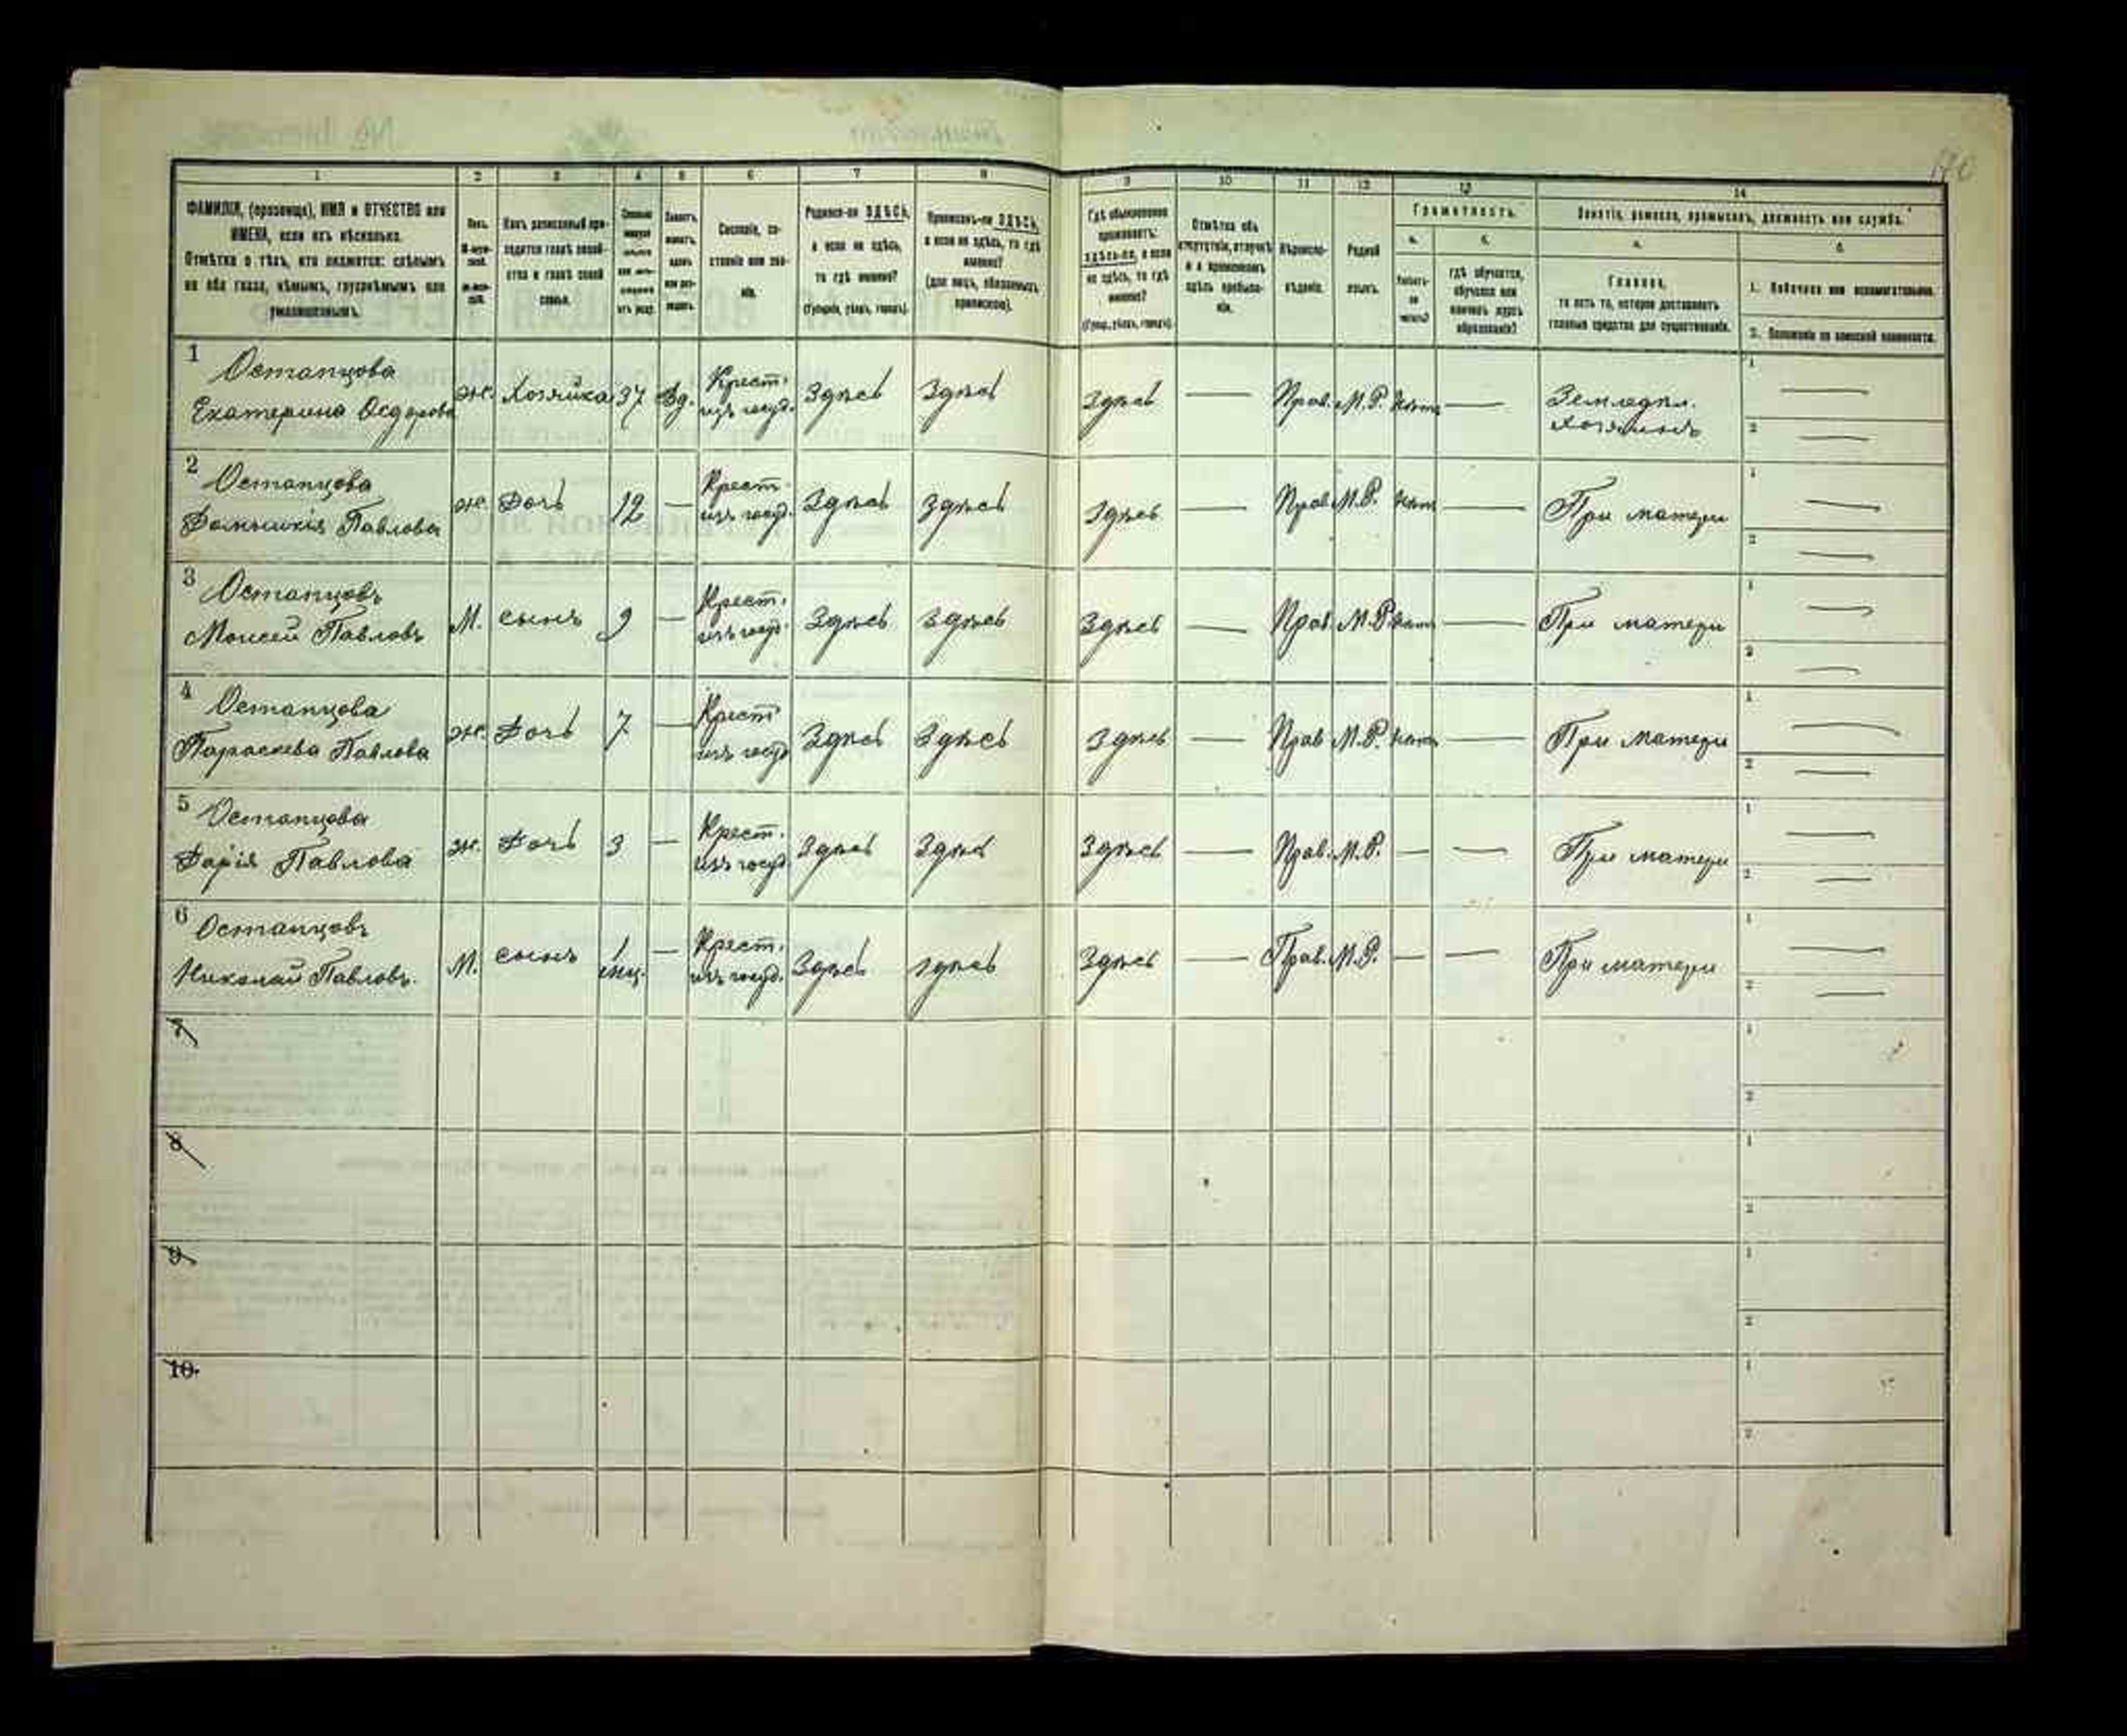 170
1 2 3 4 5 6 7 8 9 10 11 12 13 14
ФАМИЛІЯ, (прозвище), ИМЯ и ОТЧЕСТВО или
ИМЕНА, если ихъ нѣсколько.
Отмѣтка о тѣхъ, кто окажется: слѣпымъ
на оба глаза, нѣмымъ, глухонѣмымъ или
умалишеннымъ.
Полъ.
Какъ записанный при-
ходится главѣ хозяй-
ства и главѣ своей
семьи.
Сословіе, со-
стояніе или зва-
ніе.
Родился-ли ЗДѢСЬ,
а если не здѣсь,
то гдѣ именно?
(Губернія, уѣздъ, городъ).
Приписанъ-ли ЗДѢСЬ,
а если не здѣсь, то гдѣ
именно?
(для лицъ, обязанныхъ
припискою).
Гдѣ обыкновенно
проживаетъ:
здѣсь-ли, а если
не здѣсь, то гдѣ
именно?
(Губ., уѣздъ, городъ).
Отмѣтка объ
отсутствіи, отлучкѣ
и о временномъ
здѣсь пребыва-
ніи.
Вѣроиспо-
вѣданіе.
Родной
языкъ.
Грамотность.
а. б.
Умѣетъ-
ли
читать?
гдѣ обучается,
обучался или
кончилъ курсъ
образованія?
Занятіе, ремесло, промыселъ, должность или служба.
а. б.
Главное,
то есть то, которое доставляетъ
главныя средства для существованія.
1. Побочное или вспомогательное.
2. Положеніе по воинской повинности.
1 Остапцова
Екатерина Ѳедорова ж. Хозяйка 37 Вд. Крест. изъ госуд. Здѣсь Здѣсь Здѣсь — Прав. М.Р. Нѣтъ — Земледѣл. хозяинъ 1 — 2 —
2 Остапцова
Домникія Павлова ж. Дочь 12 — Крест. изъ госуд. Здѣсь Здѣсь Здѣсь — Прав. М.Р. Нѣтъ — При матери 1 — 2 —
3 Остапцовъ
Моисей Павловъ М. сынъ 9 — Крест. изъ госуд. Здѣсь Здѣсь Здѣсь — Прав. М.Р. Нѣтъ — При матери 1 — 2 —
4 Остапцова
Параскева Павлова ж. Дочь 7 — Крест. изъ госуд. Здѣсь Здѣсь Здѣсь — Прав. М.Р. Нѣтъ — При матери 1 — 2 —
5 Остапцова
Дарія Павлова ж. Дочь 3 — Крест. изъ госуд. Здѣсь Здѣсь Здѣсь — Прав. М.Р. — — При матери 1 — 2 —
6 Остапцовъ
Николай Павловъ. М. сынъ 1 мц. — Крест. изъ госуд. Здѣсь Здѣсь Здѣсь — Прав. М.Р. — — При матери 1 — 2 —
7 1 2
8 1 2
9 1 2
10 1 2